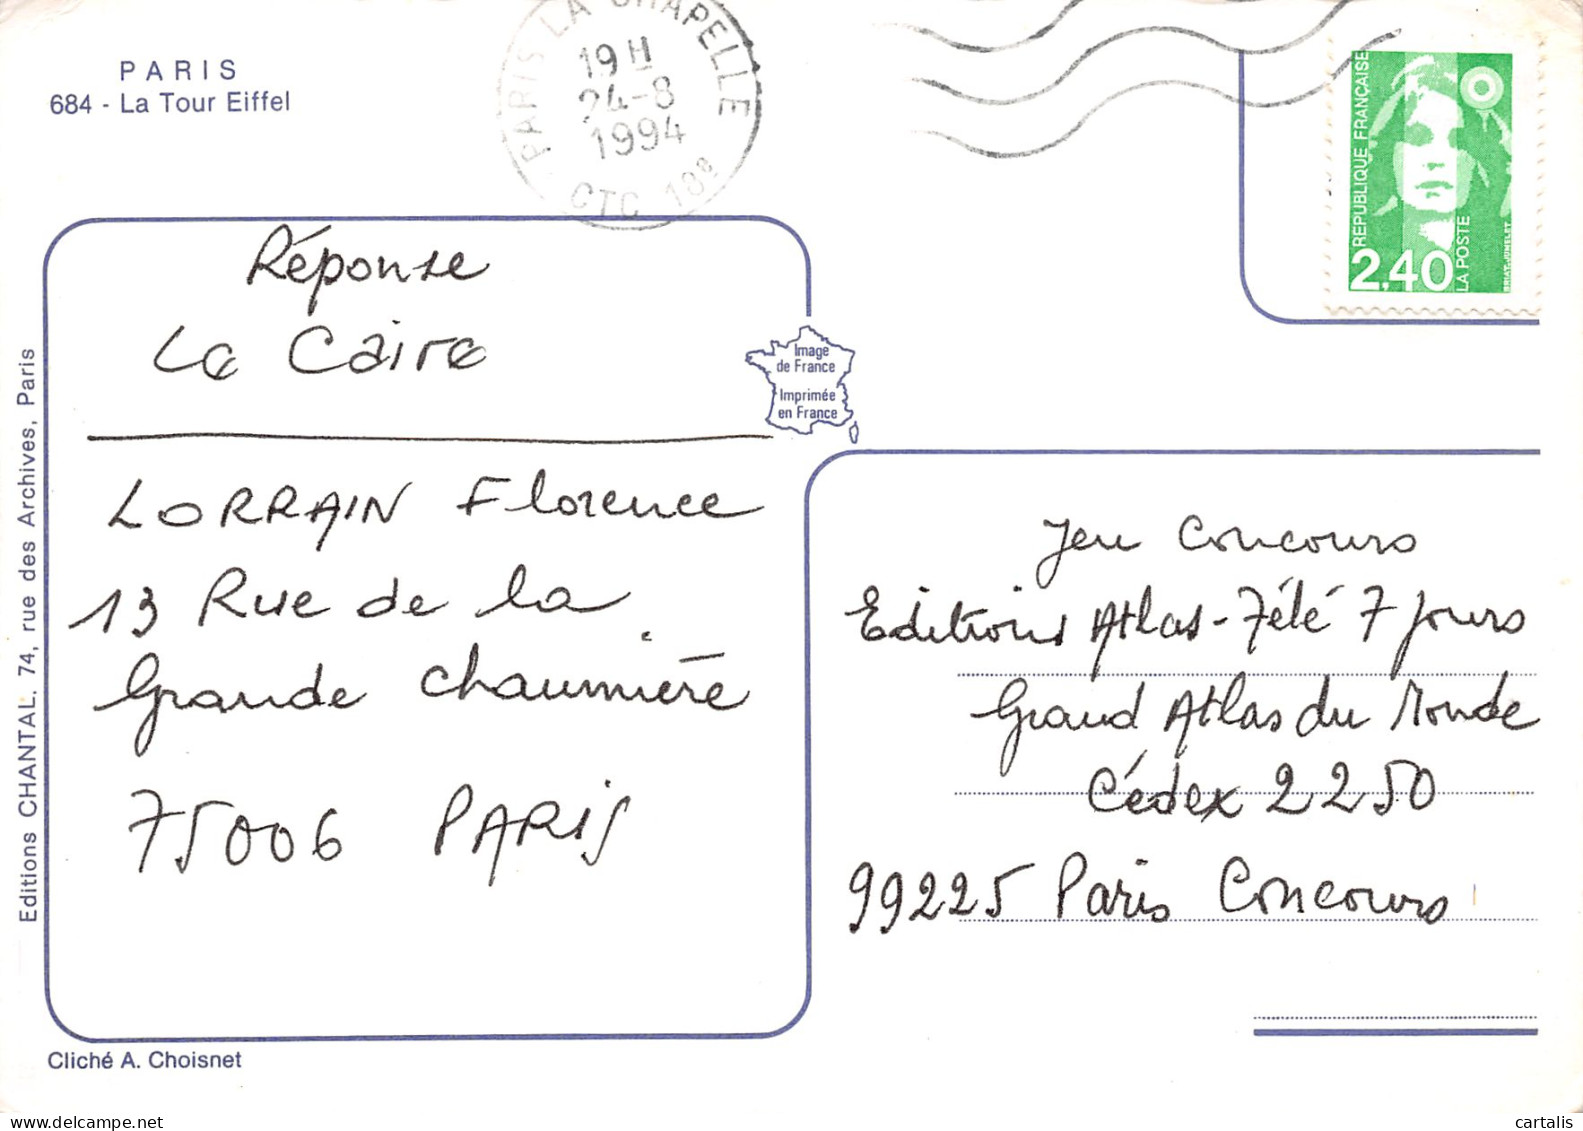 PARIS
684 - La Tour Eiffel
PARIS LA CHAPELLE
19H
24-8
1994
CTC 18e
REPUBLIQUE FRANÇAISE
2,40
LA POSTE
Réponse
Le Caire
Image
de France
Imprimée
en France
LORRAIN Florence
13 Rue de la
Grande Chaumière
75006 PARIS
Jeu Concours
Editions Atlas-Télé 7 Jours
Grand Atlas du Monde
Cédex 2250
99225 Paris Concours
Editions CHANTAL. 74, rue des Archives, Paris
Cliché A. Choisnet
www.delcampe.net
cartalis